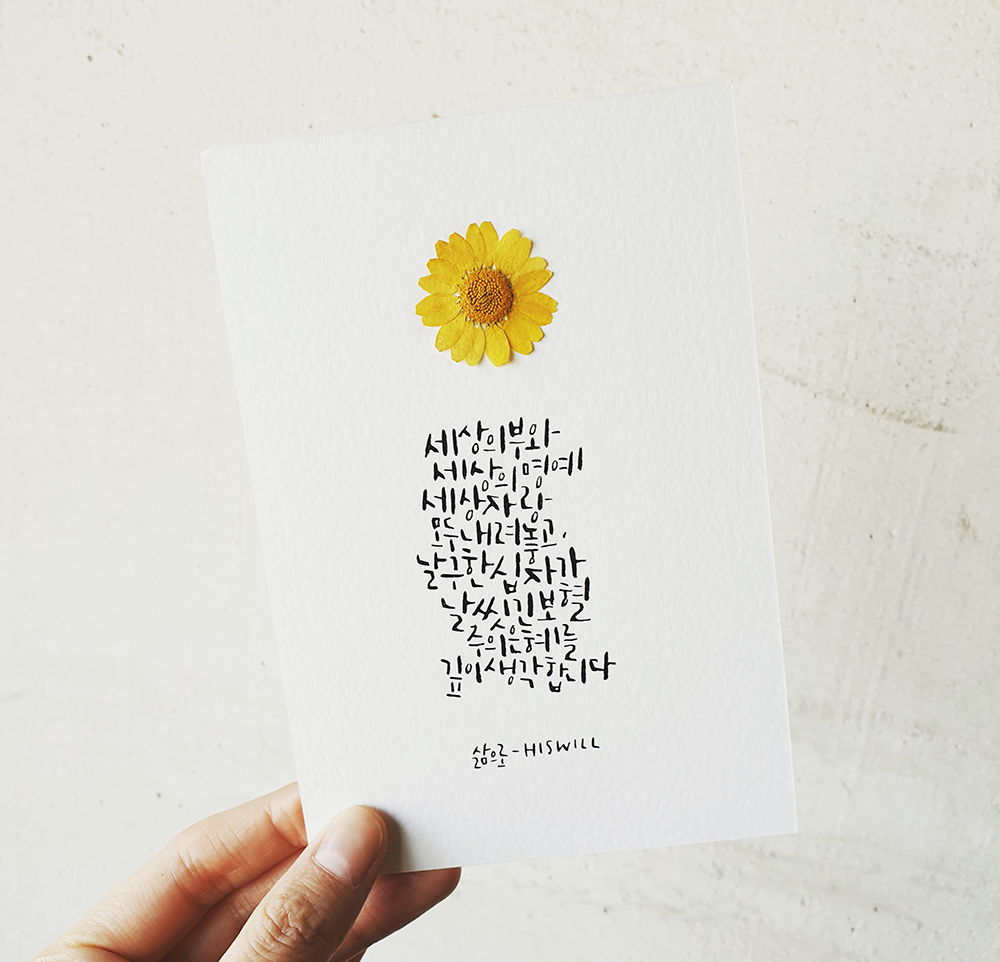 세상의 부와
세상의 명예
세상 자랑
모두 내려놓고,
날 구한 십자가
날 씻긴 보혈
주의 은혜를
깊이 생각합니다
삶으로 - HISWILL